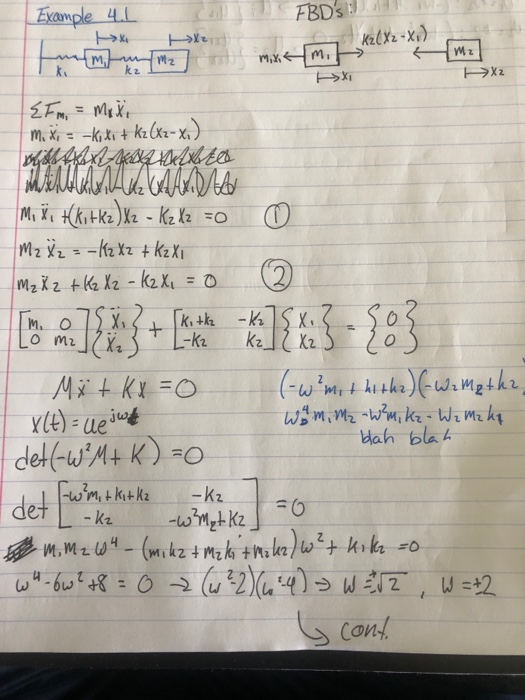 Example 4.1
FBD's:
→x₁ →x₂
m₁ m₂
k₁ k₂
m₁x₁ ← m₁ → k₂(x₂-x₁) ← m₂
→x₁ →x₂
ΣFm₁ = m₁ẍ₁
m₁ẍ₁ = -k₁x₁ + k₂(x₂-x₁)
m₁ẍ₁ + (k₁+k₂)x₂ - k₂x₂ = 0 ①
m₂ẍ₂ = -k₂x₂ + k₂x₁
m₂ẍ₂ + k₂x₂ - k₂x₁ = 0 ②
[m₁ 0; 0 m₂]{ẍ₁; ẍ₂} + [k₁+k₂ -k₂; -k₂ k₂]{x₁; x₂} = {0; 0}
Mẍ + Kx = 0
x(t) = ue^jωt
det(-ω²M + K) = 0
(-ω²m₁ + k₁+k₂)(-ω₂m₂+k₂
ω⁴m₁m₂ - ω²m₁k₂ - ω₂m₂k₁
blah blah
det [-ω²m₁+k₁+k₂ -k₂; -k₂ -ω²m₂+k₂] = 0
m₁m₂ω⁴ - (m₁k₂ + m₂k₁ + m₂k₂)ω² + k₁k₂ = 0
ω⁴-6ω²+8 = 0 → (ω²-2)(ω²-4) → ω=±√2, ω=±2
↳ cont.